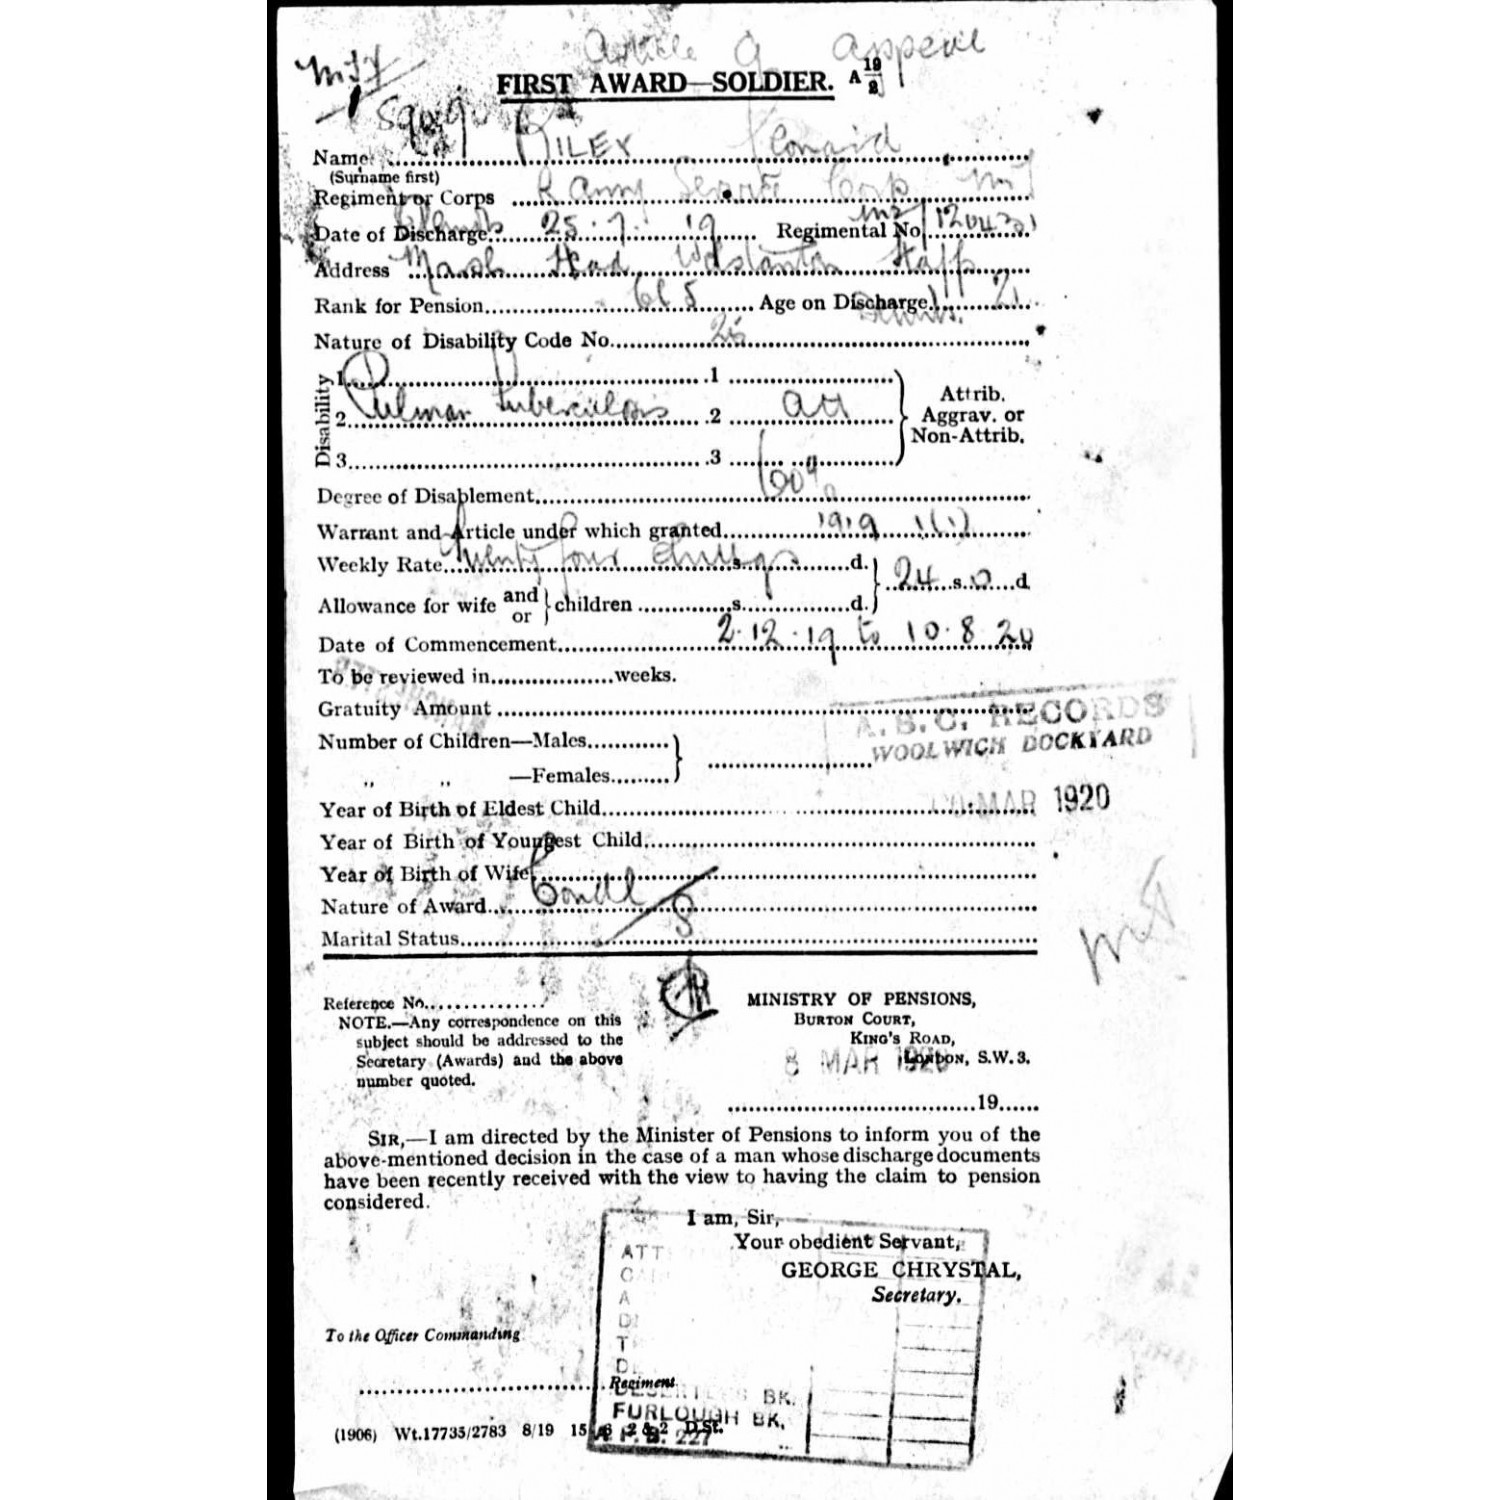 Article 9 appeal
FIRST AWARD—SOLDIER. A 19/2
Name RILEY Leonard
(Surname first)
Regiment or Corps R Army Service Corps MT
Date of Discharge 25.7.19 Regimental No
Address Marsh Head Wolstanton Staffs
Rank for Pension Age on Discharge 21
Nature of Disability Code No. 26
Disability
1 .1
2 Pulmar Tuberculosis .2 att
3 .3
Attrib.
Aggrav. or
Non-Attrib.
Degree of Disablement 60%
Warrant and Article under which granted 1919 1(1)
Weekly Rate Twenty four shillings s. d. 24 s. 0 d.
Allowance for wife and or children s. d.
Date of Commencement 2.12.19 to 10.8.20
To be reviewed in weeks.
Gratuity Amount
A.S.C. RECORDS
WOOLWICH DOCKYARD
Number of Children—Males
„ „ —Females
MAR 1920
Year of Birth of Eldest Child
Year of Birth of Youngest Child
Year of Birth of Wife
Nature of Award Condl
Marital Status
Reference No.
NOTE.—Any correspondence on this
subject should be addressed to the
Secretary (Awards) and the above
number quoted.
MINISTRY OF PENSIONS,
BURTON COURT,
KING'S ROAD,
LONDON, S.W.3.
8 MAR 1920
19
SIR,—I am directed by the Minister of Pensions to inform you of the
above-mentioned decision in the case of a man whose discharge documents
have been recently received with the view to having the claim to pension
considered.
I am, Sir,
Your obedient Servant,
GEORGE CHRYSTAL,
Secretary.
To the Officer Commanding
Regiment
BK.
FURLOUGH BK.
(1906) Wt.17735/2783 8/19